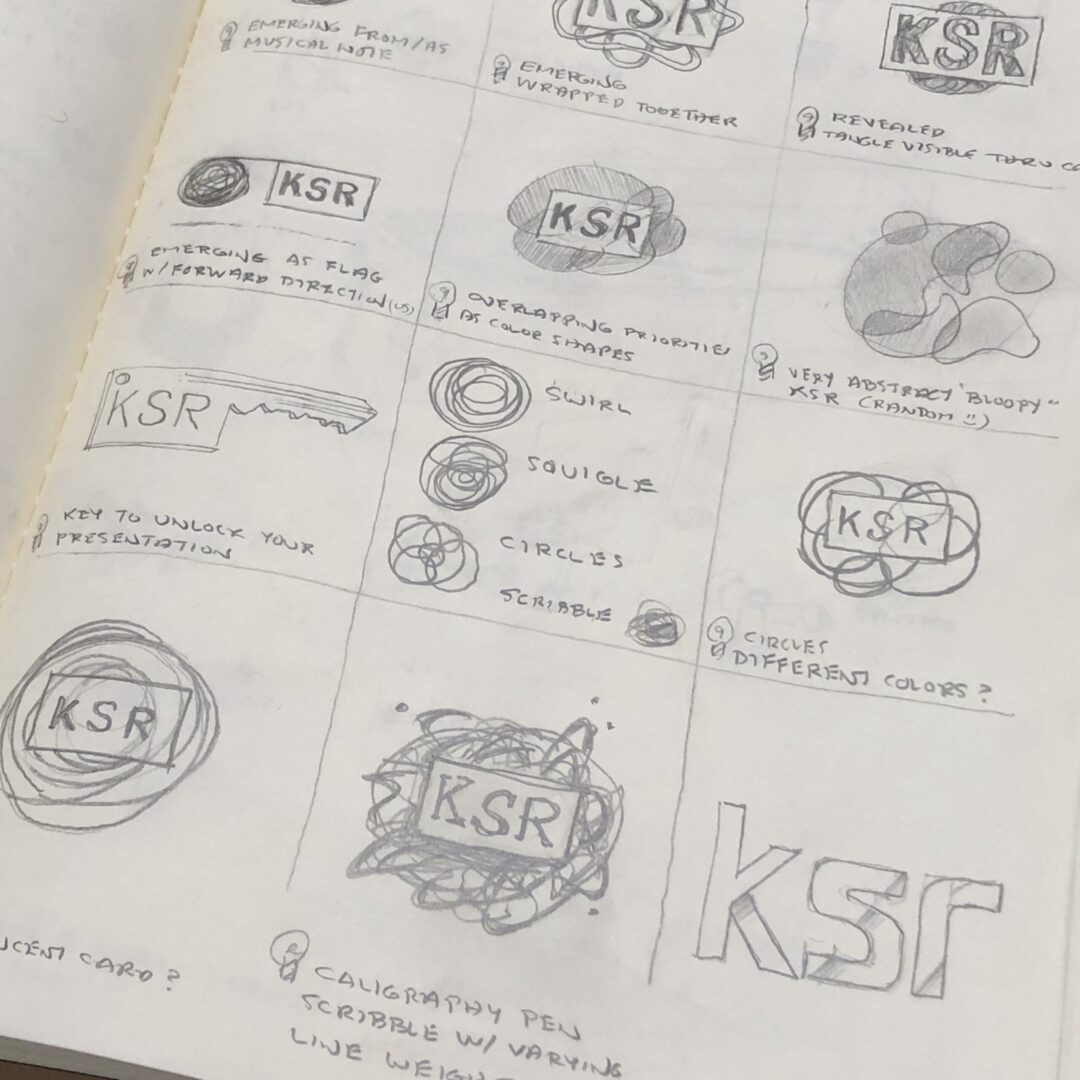 EMERGING FROM/AS
MUSICAL NOTE
KSR
EMERGING
WRAPPED TOGETHER
KSR
REVEALED
TANGLE VISIBLE THRU
KSR
EMERGING AS FLAG
W/FORWARD DIRECTION (US)
KSR
OVERLAPPING PRIORITIES
AS COLOR SHAPES
VERY ABSTRACT "BLOOPY"
KSR (RANDOM :))
KSR
KEY TO UNLOCK YOUR
PRESENTATION
SWIRL
SQUIGLE
CIRCLES
SCRIBBLE
KSR
CIRCLES
DIFFERENT COLORS?
KSR
CARD?
KSR
CALIGRAPHY PEN
SCRIBBLE W/ VARYING
LINE
ksr